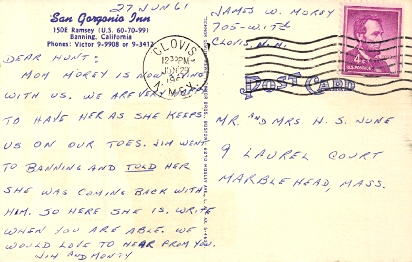 27 JUN 61
San Gorgonio Inn
150E Ramsey (U.S. 60-70-99)
Banning, California
Phones: Victor 9-9908 or 9-3412
DEAR HUNT:
MOM MOREY IS NOW LIVING
WITH US. WE ARE VERY
TO HAVE HER AS SHE KEEPS
US ON OUR TOES. JIM WENT
TO BANNING AND TOLD HER
SHE WAS COMING BACK WITH
HIM. SO HERE SHE IS. WRITE
WHEN YOU ARE ABLE. WE
WOULD LOVE TO HEAR FROM YOU.
JIM AND MONTY
CLOVIS
12 30 PM
JUN 29
1961
N. MEX.
JAMES W. MOREY
705-W. 17th
CLOVIS, N.M.
4¢
U.S. POSTAGE
POST CARD
MR. AND MRS H. S. JUNE
9 LAUREL COURT
MARBLEHEAD, MASS.